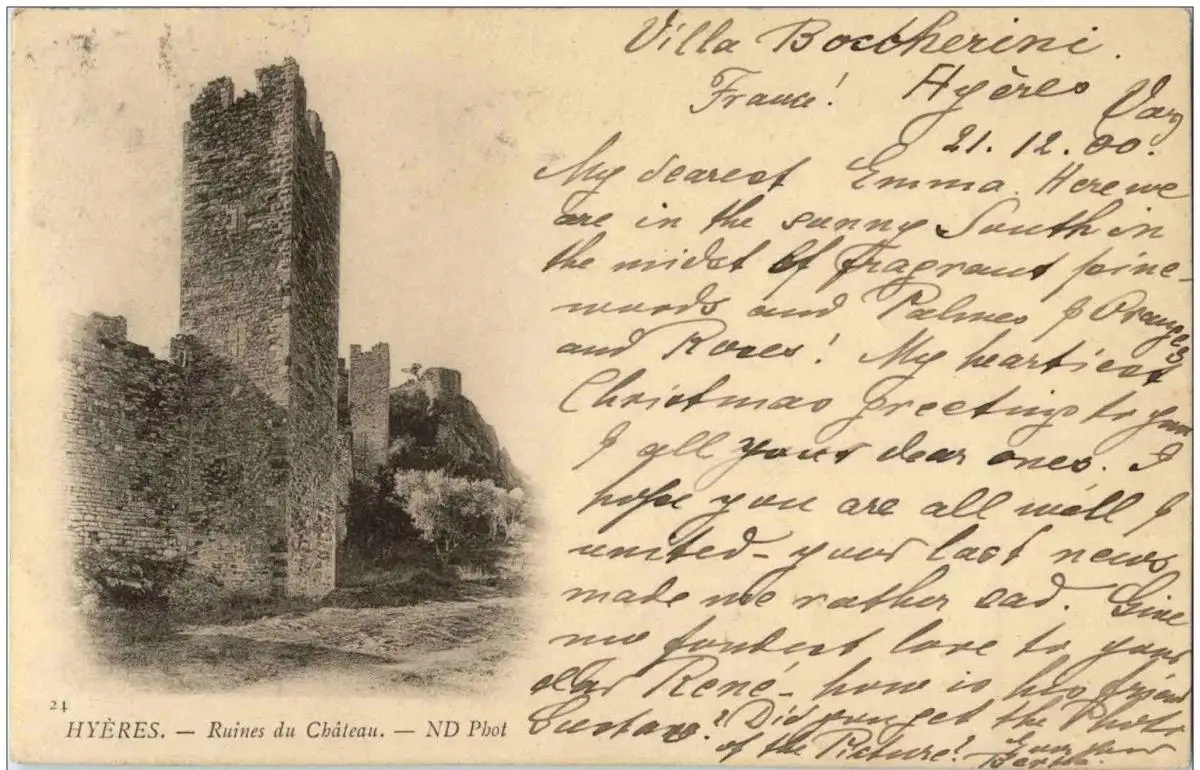 Villa Boccherini.
France! Hyères Var
21.12.00.
My dearest Emma. Here we
are in the sunny South in
the midst of fragrant pine-
woods and Palmes & Oranges
and Roses! My heartiest
Christmas greetings to you
& all your dear ones. I
hope you are all well &
united - your last news
made me rather sad. Give
my fondest love to your
dear René - how is his friend
Gustave? Did you get the Photo
of the Picture? Ever your
Bertha.
24
HYÈRES. — Ruines du Château. — ND Phot